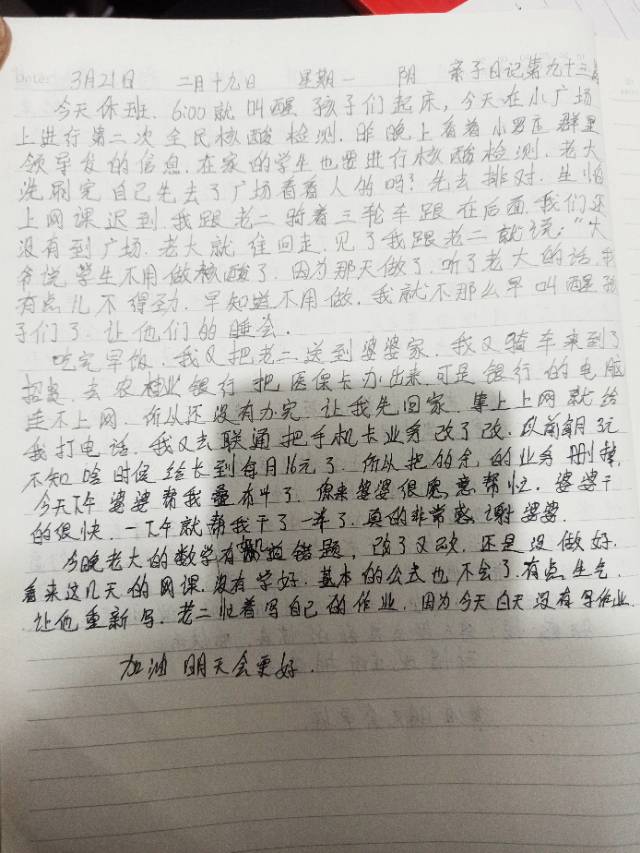 3月21日 二月十九日 星期一 阴 亲子日记第九十三篇
今天休班. 6:00就叫醒孩子们起床, 今天在小广场
上进行第二次全民核酸检测. 昨晚上看着小男庄群里
领导发的信息. 在家的学生也要进行核酸检测. 老大
洗刷完自己先去了广场看看人的吗? 先去排对. 生怕
上网课迟到. 我跟老二骑着三轮车跟在后面. 我们还
没有到广场. 老大就往回走. 见了我跟老二就说: "大
爷说学生不用做核酸了. 因为那天做了. 听了老大的话. 我
有点儿不得劲. 早知道不用做. 我就不那么早叫醒孩
子们了. 让他们的睡会.
吃完早饭. 我又把老二送到婆婆家. 我又骑车来到了
去农村业银行把医保卡办出来. 可是银行的电脑
连不上网. 所以还没有办完. 让我先回家. 等上上网就给
我打电话. 我又去联通把手机卡业务改了改. 以前每月3元
不知啥时候给长到每月16元了. 所以把的余, 的业务删掉.
今天下午婆婆帮我 有4了. 原来婆婆很愿意帮忙. 婆婆干
的很快. 一下午就帮我干了一半了. 真的非常感谢婆婆.
今晚老大的数学有 错题, 改了又改. 还是没做好.
看来这几天的网课. 没有学好. 基本的公式也不会了. 有点生气.
让他重新写. 老二归着写自己的作业. 因为今天白天没有写作业.
加油 明天会更好.